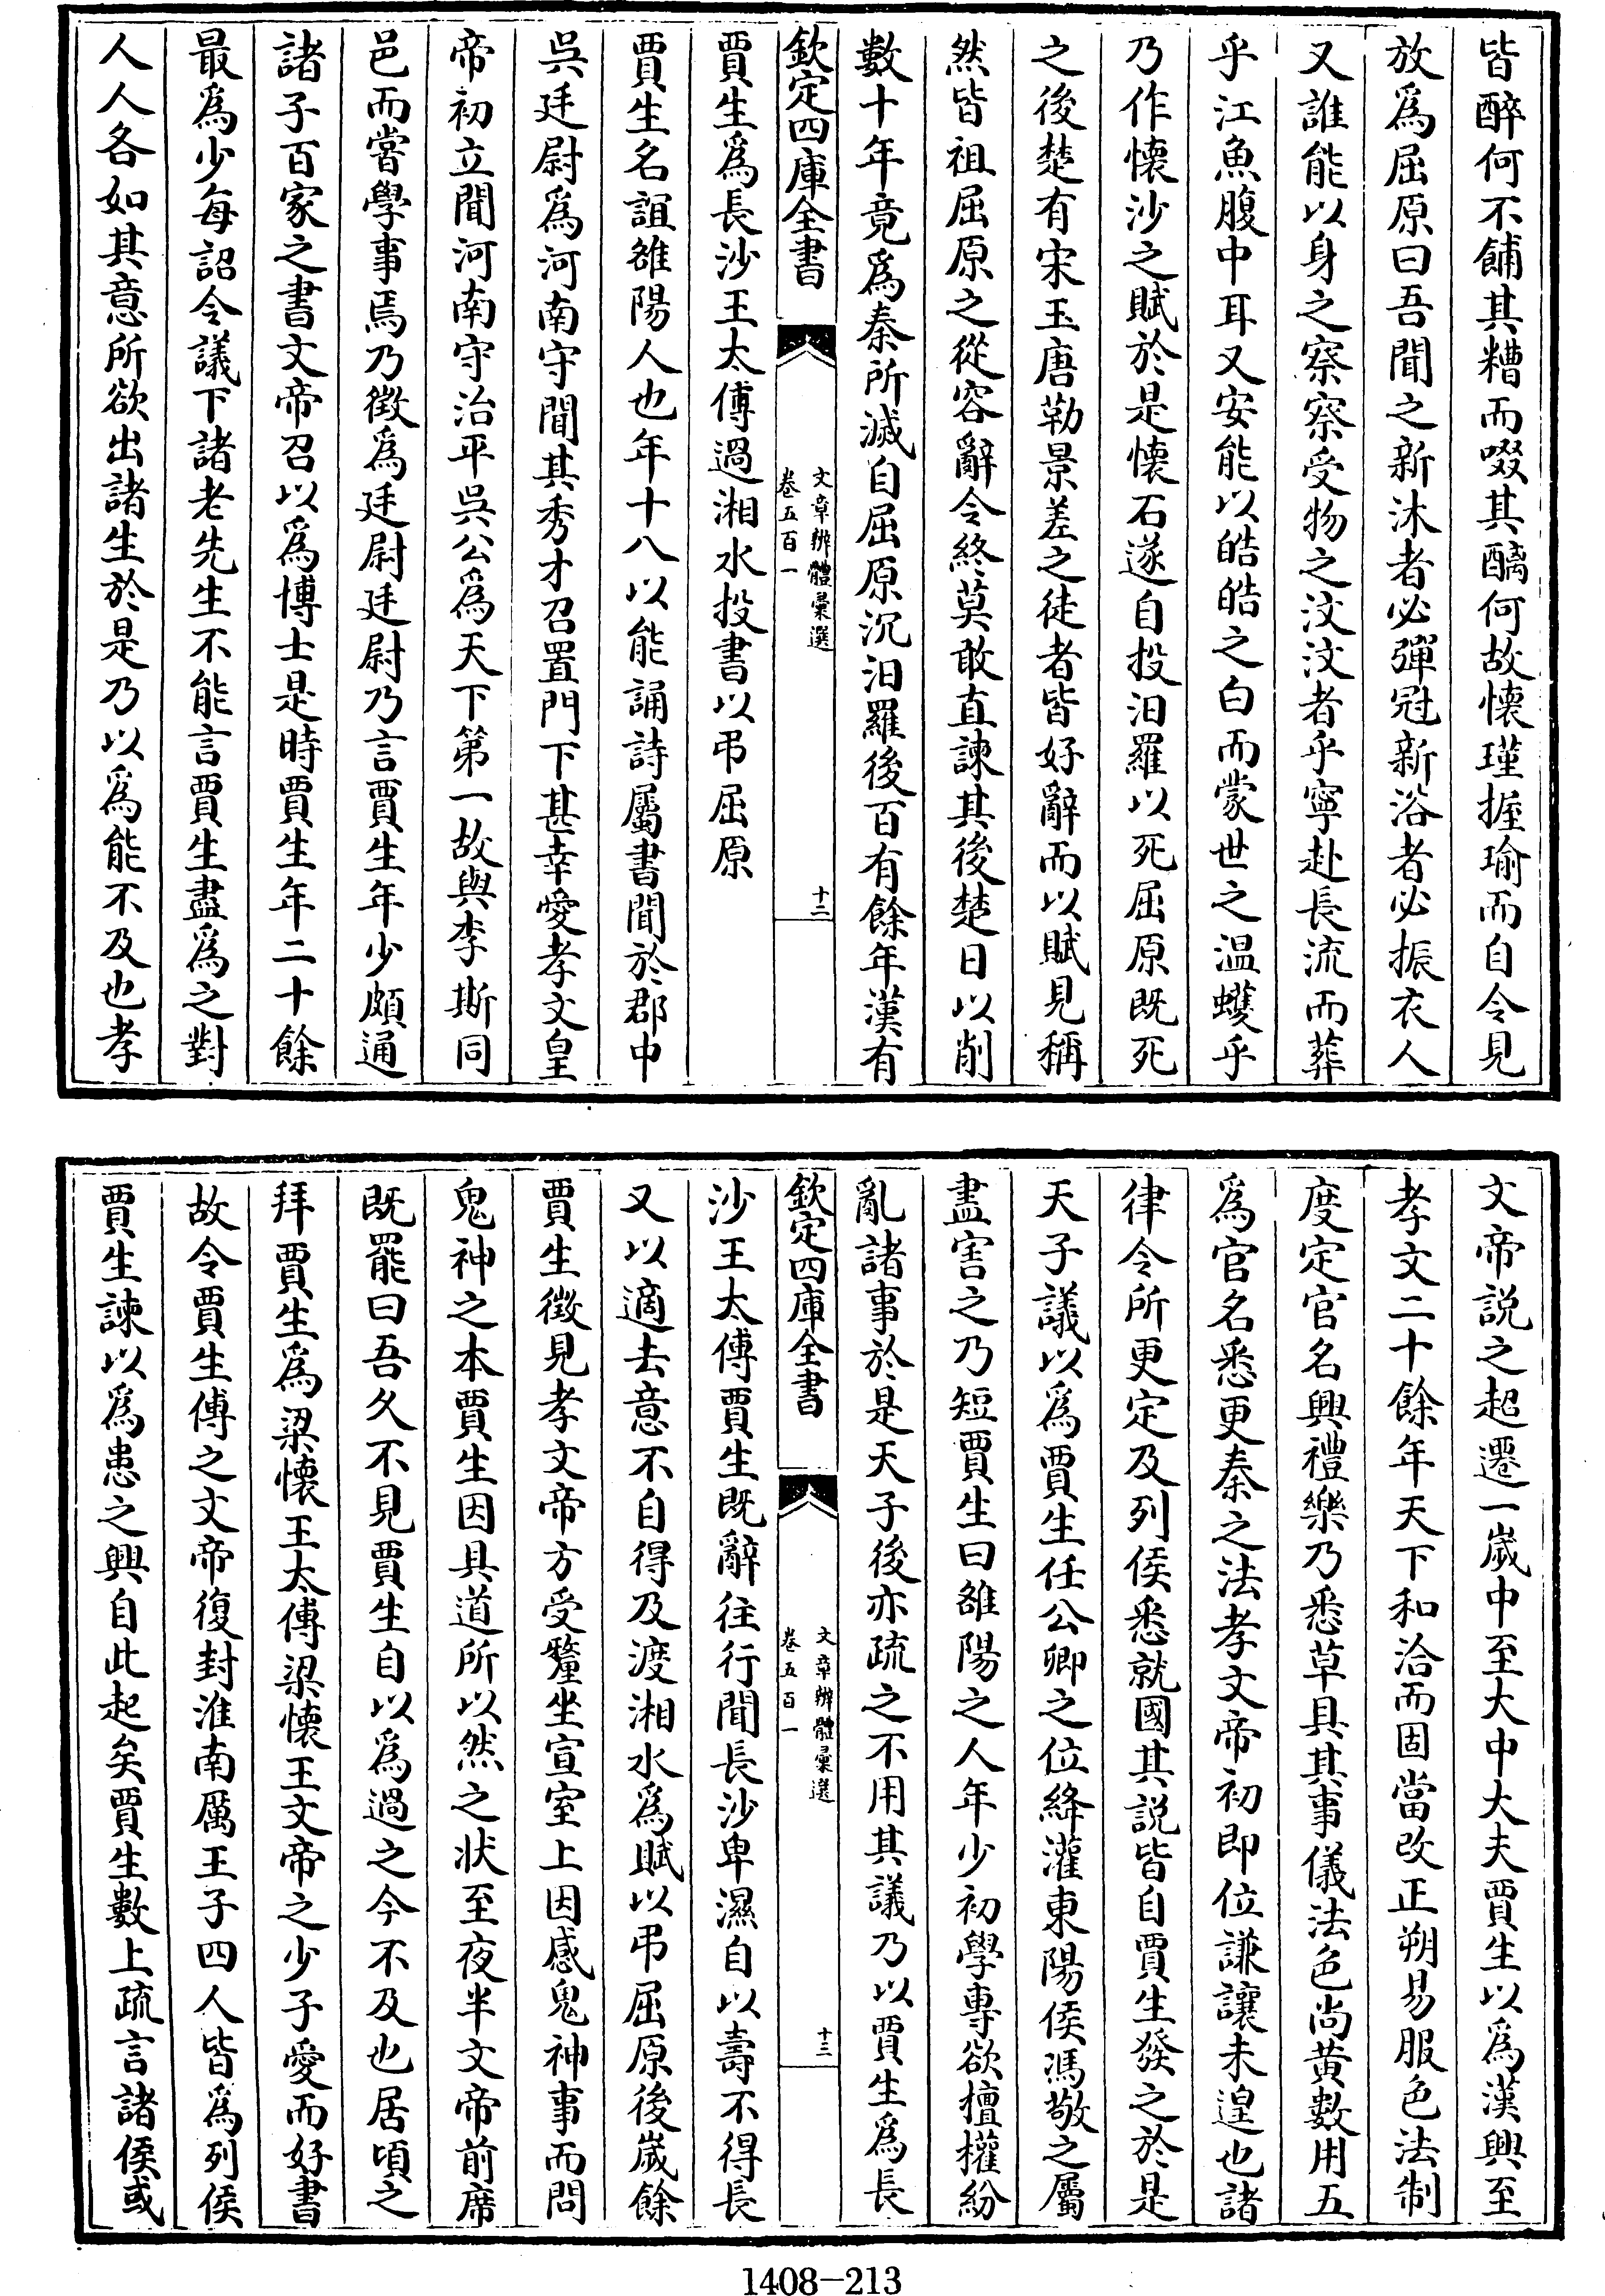 皆醉何不餔其糟而啜其醨何故懷瑾握瑜而自令見
放爲屈原曰吾聞之新沐者必彈冠新浴者必振衣人
又誰能以身之察察受物之汶汶者乎寧赴長流而葬
乎江魚腹中耳又安能以皓皓之白而蒙世之温蠖乎
乃作懷沙之賦於是懷石遂自投汨羅以死屈原既死
之後楚有宋玉唐勒景差之徒者皆好辭而以賦見稱
然皆祖屈原之從容辭令終莫敢直諫其後楚日以削
數十年竟爲秦所滅自屈原沉汨羅後百有餘年漢有
欽定四庫全書
文章辨體彙選
卷五百一
十二
賈生爲長沙王太傅過湘水投書以弔屈原
賈生名誼雒陽人也年十八以能誦詩屬書聞於郡中
吳廷尉爲河南守聞其秀才召置門下甚幸愛孝文皇
帝初立聞河南守治平吳公爲天下第一故與李斯同
邑而嘗學事焉乃徵爲廷尉廷尉乃言賈生年少頗通
諸子百家之書文帝召以爲博士是時賈生年二十餘
最爲少每詔令議下諸老先生不能言賈生盡爲之對
人人各如其意所欲出諸生於是乃以爲能不及也孝
文帝説之超遷一歲中至大中大夫賈生以爲漢興至
孝文二十餘年天下和洽而固當改正朔易服色法制
度定官名興禮樂乃悉草具其事儀法色尚黄數用五
爲官名悉更秦之法孝文帝初即位謙讓未遑也諸
律令所更定及列侯悉就國其説皆自賈生發之於是
天子議以爲賈生任公卿之位絳灌東陽侯馮敬之屬
盡害之乃短賈生曰雒陽之人年少初學專欲擅權紛
亂諸事於是天子後亦疏之不用其議乃以賈生爲長
欽定四庫全書
文章辨體彙選
卷五百一
十三
沙王太傅賈生既辭往行聞長沙卑濕自以壽不得長
又以適去意不自得及渡湘水爲賦以弔屈原後歲餘
賈生徵見孝文帝方受釐坐宣室上因感鬼神事而問
鬼神之本賈生因具道所以然之狀至夜半文帝前席
既罷曰吾久不見賈生自以爲過之今不及也居頃之
拜賈生爲梁懷王太傅梁懷王文帝之少子愛而好書
故令賈生傅之文帝復封淮南厲王子四人皆爲列侯
賈生諫以爲患之興自此起矣賈生數上疏言諸侯或
1408-213